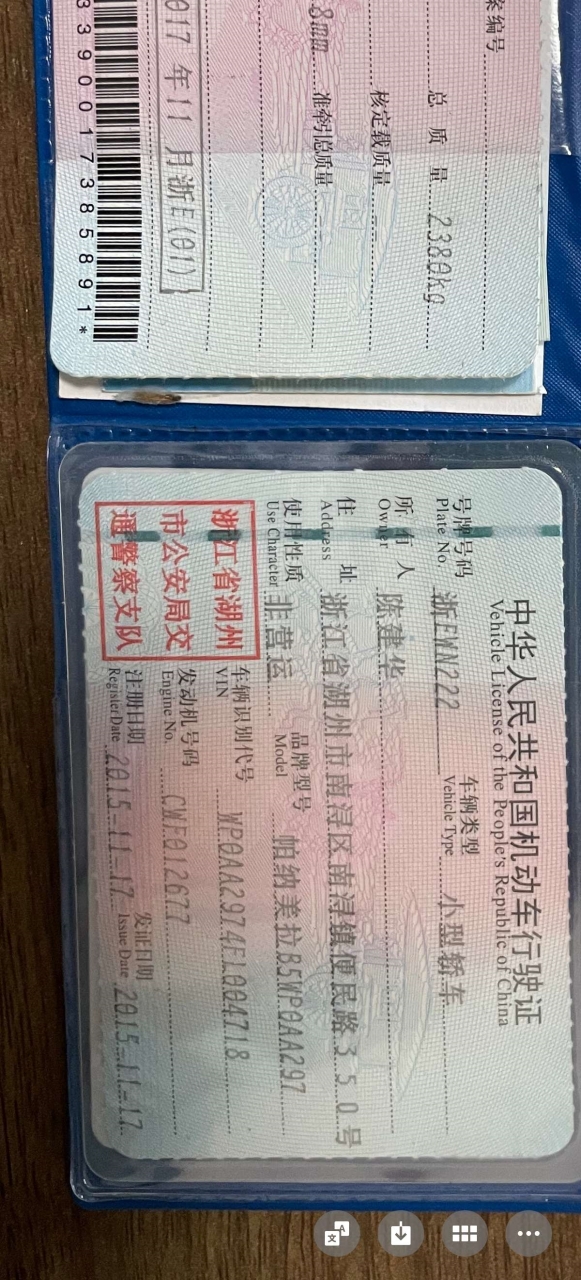 案编号
总 质 量 2380kg
核定载质量
8mm 准牵引总质量
017 年11 月浙E(01)
3390017385891*
中华人民共和国机动车行驶证
Vehicle License of the People's Republic of China
号牌号码 浙EMN222 车辆类型 小型轿车
Plate No. Vehicle Type
所 有 人 陈建华
Owner
住 址 浙江省湖州市南浔区南浔镇便民路350号
Address
使用性质 非营运 品牌型号 帕纳美拉B5WP0AA297
Use Character Model
浙江省湖州
市公安局交
通警察支队
车辆识别代号 WP0AA2974FL004718
VIN
发动机号码 CWF012677
Engine No.
注册日期 2015-11-17 发证日期 2015-11-17
Register Date Issue Date